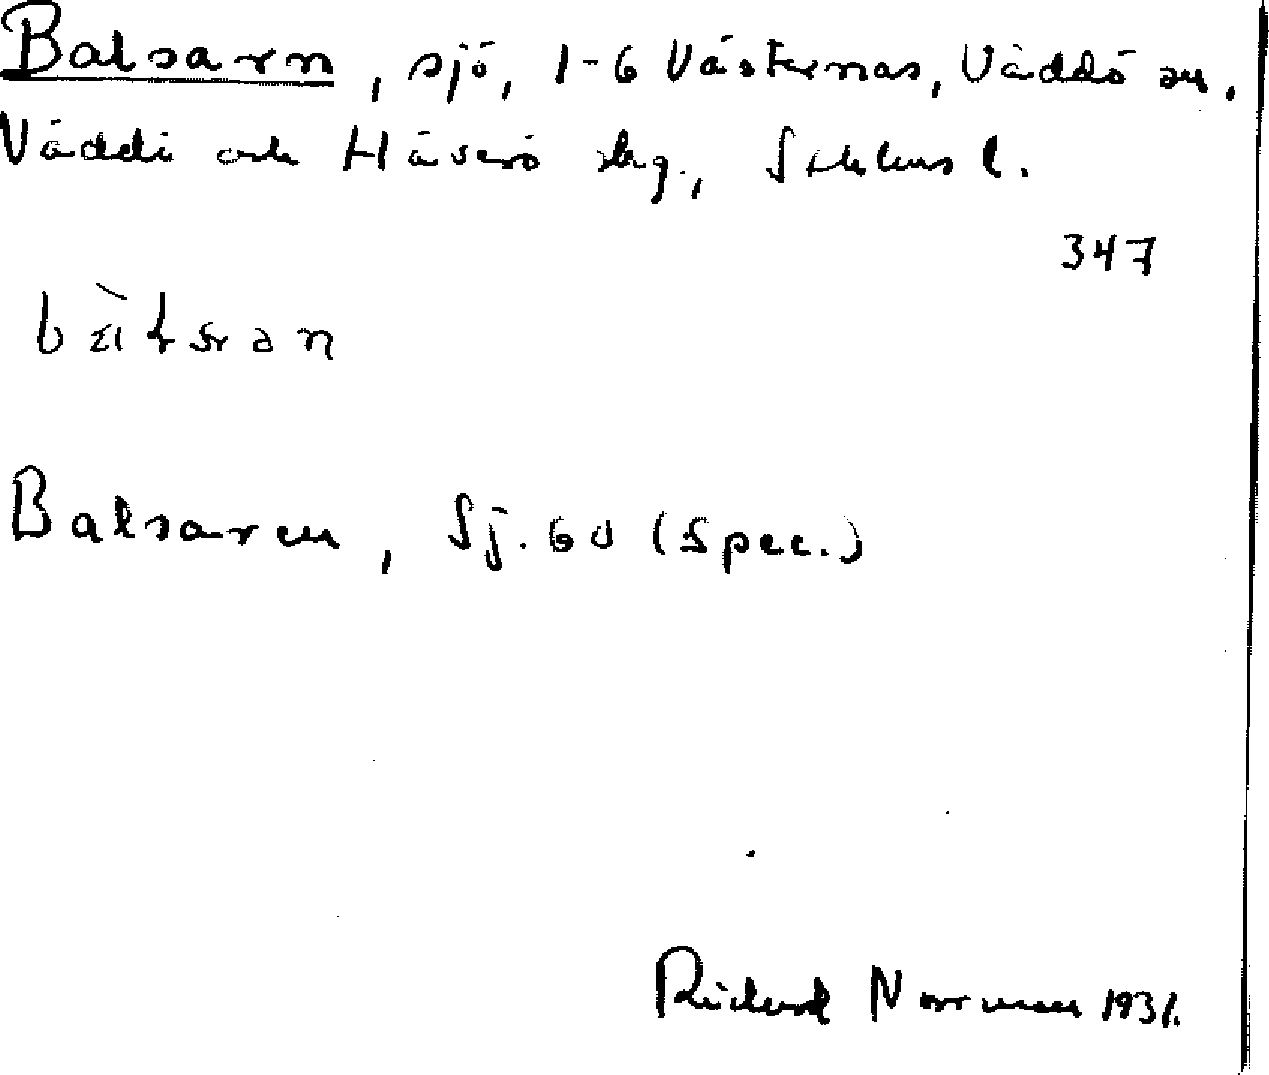 Balsarn, sjö, 1-6 Västernäs, Väddö sn,
Väddö och Häverö skg., Sthlms l.
347
Balsaren, Sj. 60 (Spec.)
Rickard Norrman 1931.